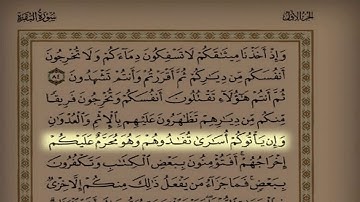 الجزء الأول
سورة البقرة
وَإِذْ أَخَذْنَا مِيثَٰقَكُمْ لَا تَسْفِكُونَ دِمَآءَكُمْ وَلَا تُخْرِجُونَ
أَنفُسَكُم مِّن دِيَٰرِكُمْ ثُمَّ أَقْرَرْتُمْ وَأَنتُمْ تَشْهَدُونَ ٨٤
ثُمَّ أَنتُمْ هَٰٓؤُلَآءِ تَقْتُلُونَ أَنفُسَكُمْ وَتُخْرِجُونَ فَرِيقًا
مِّنكُم مِّن دِيَٰرِهِمْ تَظَٰهَرُونَ عَلَيْهِم بِٱلْإِثْمِ وَٱلْعُدْوَٰنِ
وَإِن يَأْتُوكُمْ أُسَٰرَىٰ تُفَٰدُوهُمْ وَهُوَ مُحَرَّمٌ عَلَيْكُمْ
إِخْرَاجُهُمْ أَفَتُؤْمِنُونَ بِبَعْضِ ٱلْكِتَٰبِ وَتَكْفُرُونَ
بِبَعْضٍ فَمَا جَزَآءُ مَن يَفْعَلُ ذَٰلِكَ مِنكُمْ إِلَّا خِزْىٌ